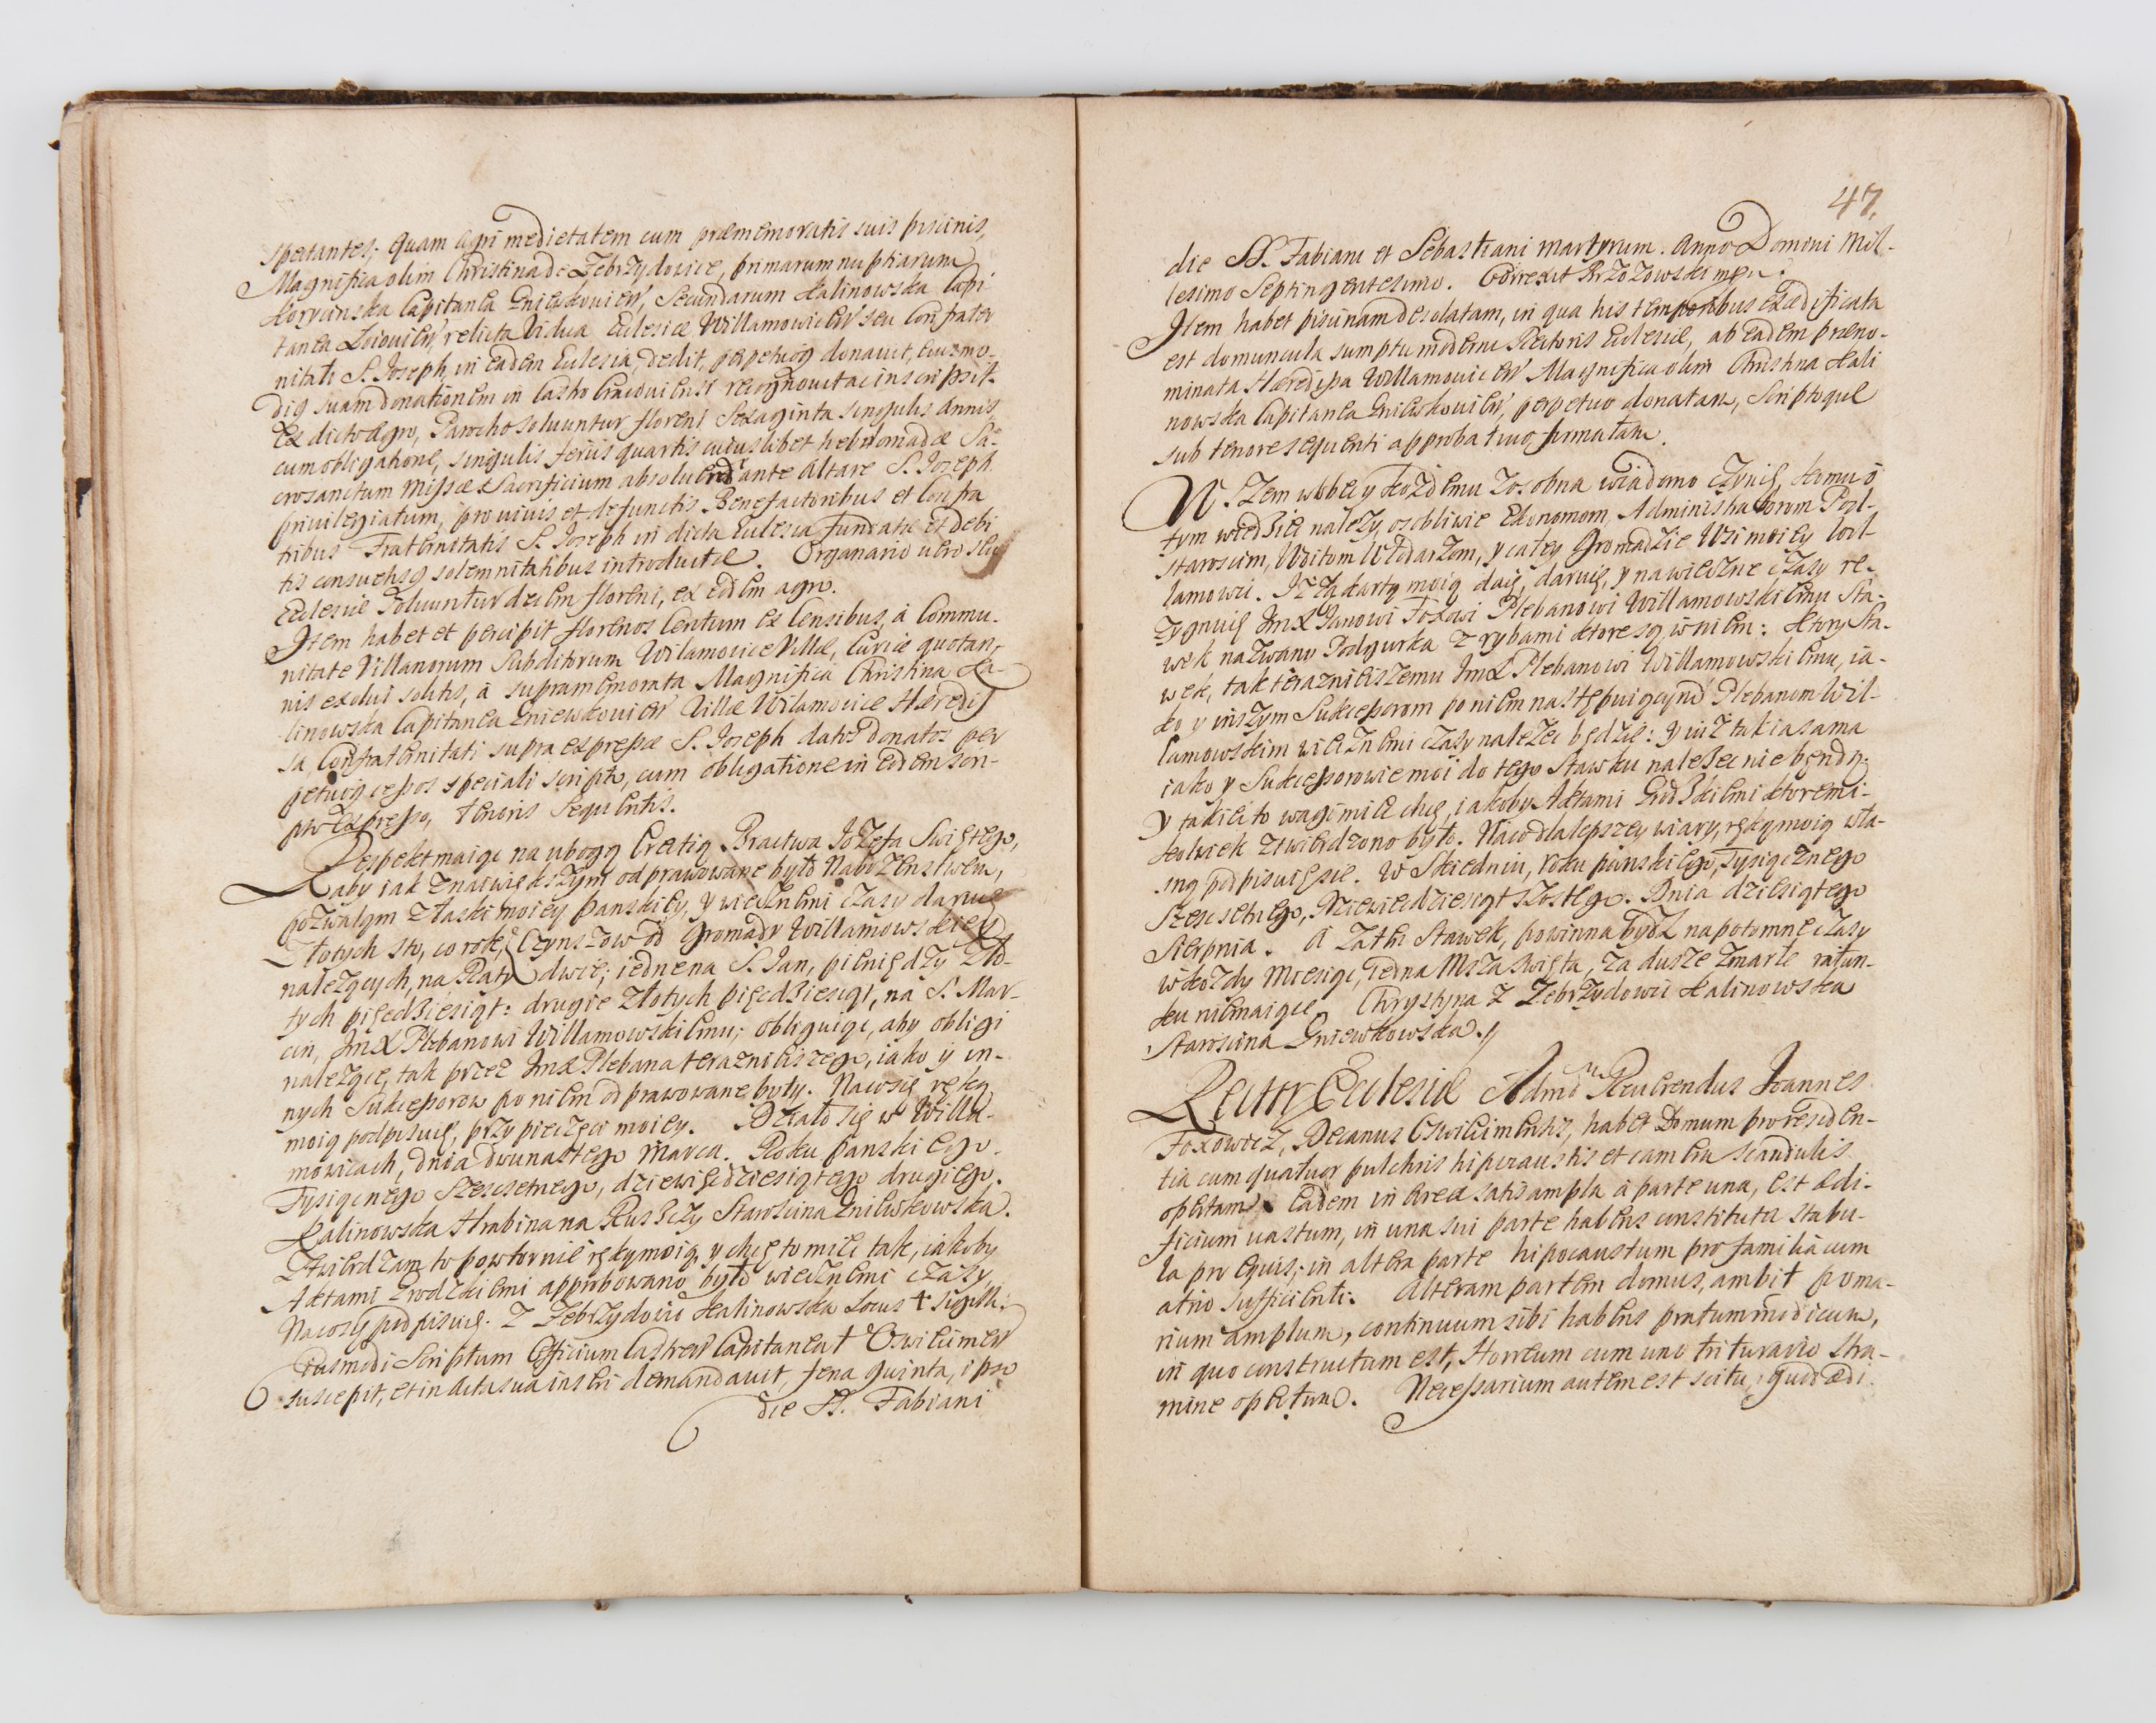 spectantes; quam agri medietatem cum præmemoratis suis piscinis,
Magnifica olim Christina de Zebrzydowice, primarum nuptiarum
Korycinska Capitanea Gniewkovien, secundarum Kalinowska Capi
tanea relicta Vidua Ecclesiæ Willamowicen seu Confrater
nitati S. Joseph, in eadem Ecclesia, dedit, perpetuoq donavit, eiusmo-
diq suam donationem in Castro Cracoviensi recognovit ac inscripsit.
Ex dicto Agro, Parocho solvuntur floreni Sexaginta singulis Annis,
cum obligatione, singulis ferijs quartis cuiuslibet hebdomadæ Sa-
crosanctum Missæ Sacrificium absoluendi ante Altare S. Joseph
privilegiatum, pro vivis et defunctis Benefactoribus et Confra
tribus Fraternitatis S. Joseph in dicta Ecclesia fundatæ et debi
tis consuetisq solemnitatibus introductæ. Organario vero
Ecclesiæ Solvuntur decem floreni, ex eodem agro.
Item habet et percipit florenos Centum ex Censibus, à Commu-
nitate Villanorum Subditorum Wilamowice Villæ, Curiæ quotan-
nis exolvi solitis, à supramemorata Magnifica Christina Ka-
linowska Capitanea Gniewkovien Villæ Wilamowice Hæredis
sa, Confraternitati supra expressæ S. Joseph datos donatos per
petuoq cessos speciali scripto, cum obligatione in eodem scri-
pto expresso, tenoris sequentis.
Respekt maiąc na ubogą Erectią Bractwa Jozefa Swiętego,
aby iak z naiwiększym odprawowane było Nabożenstwem,
pozwalam z łaski moiey panskiey, y wiecznemi czasy daruię
Złotych sto, co rok, Czynszow od Gromady Willamowskiey
należących, na Raty dwie; iedne na S. Jan, pieniędzy Zło-
tych pięcdziesiąt: drugie złotych pięcdziesiąt, na S. Mar-
cin, JmX Plebanowi Willamowskiemu; obliguiąc, aby obligi
należące, tak przez JmX Plebana terazniejszego, iako y in-
nych Sukcessorow po niem odprawowane były. Na co się ręką
moią podpisuię, przy pieczęci moiey. Działo się w Willa-
mowicach, dnia dwunastego Marca. Roku Panskiego
Tysiącnego Szescsetnego, dziewięcdziesiątego drugiego.
Kalinowska Hrabina na Starosina Gniewkowska.
Ztwierdzam to powtornie ręką moią, y chcę to miec tak, iakoby
Aktami Grodzkiemi approbowano było wiecznemi czasy
Na co się podpisuię. Z Zebrzydowic Kalinowska Locus † Sigilli.
Eiusmodi Scriptum Officium Castren Capitaneat Oswiecimen
suscepit, et in Acta sua inseri demandavit, feria quinta, ipso
die SS. Fabiani
47.
die SS. Fabiani et Sebastiani Martyrum. Anno Domini Mil-
lesimo Septingentesimo. Correxit Brzozowski mpia.
Item habet piscinam desolatam, in qua his temporibus exædificata
est domuncula sumptu moderni Rectoris Ecclesiæ, ab eadem præno-
minata Hæredissa Willamovicen Magnifica olim Christina Kali
nowska Capitanea Gniewkovien, perpetuo donatam, Scriptoque
sub tenore sequenti approbativo, firmatam.
W. Szem wobec y każdemu zosobna wiadomo czynię, komu o
tym wiedziec należy, osobliwie Ekonomom, Administratorom Pod-
staroscim, Woitom Włodarzom, y całey Gromadzie Wsi moiey Wil-
lamowic. Iż tą kartą moią daię, daruię, y na wieczne czasy re-
zygnuię JmX Janowi Foxowi Plebanowi Willamowskiemu Sta-
wek nazwany Podgurka z rybami ktore są w niem: ktory Sta-
wek, tak terazniejszemu JmX Plebanowi Willamowskiemu, ia-
ko y inszym Sukcessorom po niem nastęuiącym Plebanom Wil-
lamowskim wiecznemi czasy należec będzie: y iuż tak ia sama
iako y Sukcessorowie moi do tego Stawku należec nie będą.
Y takiei to wagi miec chcę, iakoby Aktami Grodzkiemi ktoremi-
kolwiek ztwierdzono było. Na co dla lepszey wiary, ręką moią wła-
sną podpisuię się. W Skiedniu, roku panskiego, Tysiącznego
Szescsetnego, Dziewiedziesiąt szostego. Dnia dziesiątego
Sierpnia. A za ten Stawek, powinna bydź na potomne czasy
w każdy Miesiąc, iedna Msza Swięta, za dusze zmarłe ratun-
ku niemaiące. Chrystyna z Zebrzydowic Kalinowska
Starosina Gniewkowska.
Rector Ecclesiæ Admd Reverendus Joannes
Foxowicz, Decanus Oswiecimensis, habet Domum pro residen-
tia cum quatuor pulchris hipocaustis et camera scandulis
opertam. Eadem in area satis ampla à parte una, est ædi-
ficium vastum, in una sui parte habens constituta stabu-
la pro equis; in altera parte hipocaustum pro familia cum
atrio sufficienti. Alteram partem domus, ambit poma-
rium amplum, continuum sibi habens pratum modicum,
in quo constructum est, Horreum cum uno trituratorio stra-
mine opertum. Necessarium autem est scitu, quod ædi